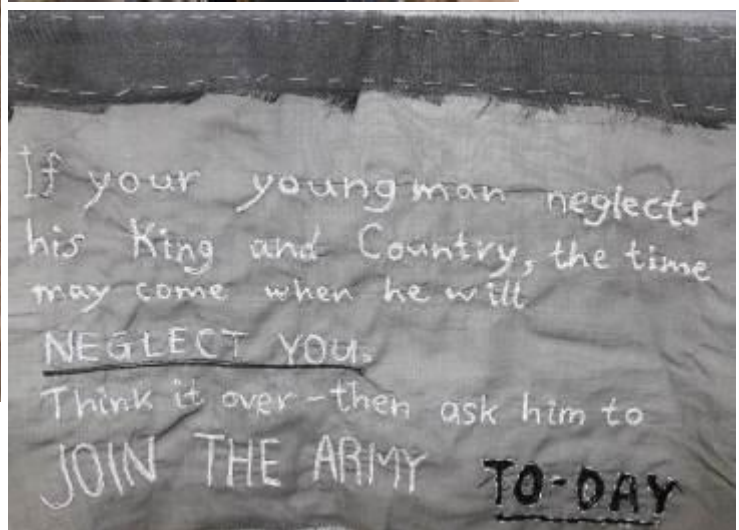 If your young man neglects
his King and Country, the time
may come when he will
NEGLECT YOU.
Think it over - then ask him to
JOIN THE ARMY TO-DAY